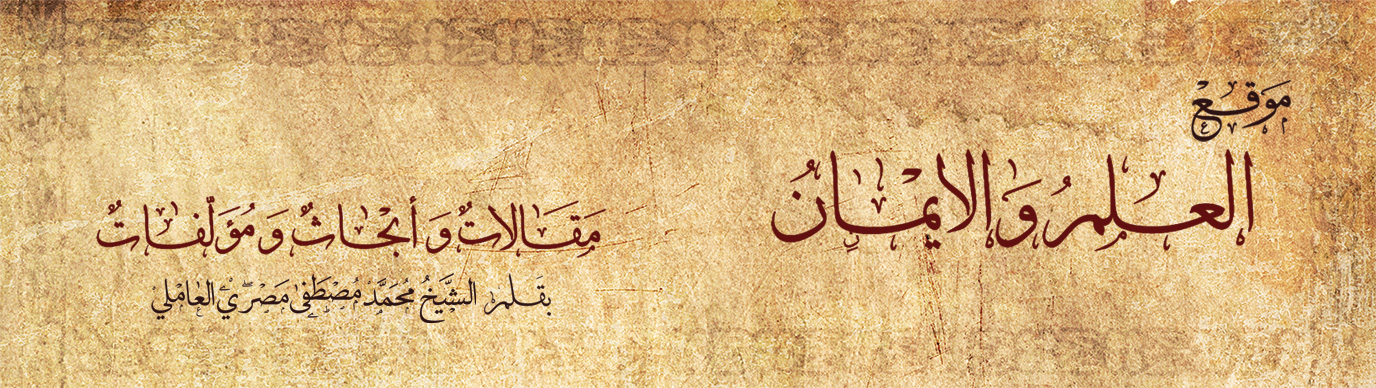 مَوَقِعْ
العِلمُ وَ الايمْانُ
مَقَالاتٌ وَ أبحَاثٌ وَ مُؤَلّفَاتٌ
بقَلم الشَّيخُ مُحَمَّد مُصْطَفىٰ مَصْريْ العَاملي